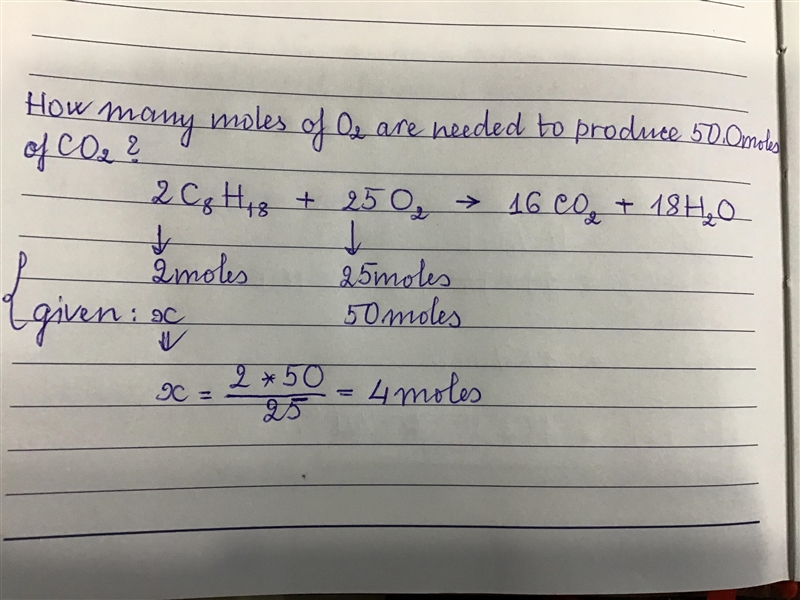 How many moles of O₂ are needed to produce 50.0moles
of CO₂ ?
2 C₈ H₁₈ + 25 O₂ → 16 CO₂ + 18H₂O
↓ ↓
2moles 25moles
{ given : x 50moles
⇓
x = 2 * 50 / 25 = 4 moles